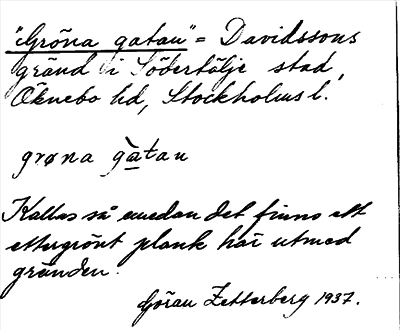 "Gröna gatan" = Davidssons
gränd i Södertälje stad,
Öknebo hd, Stockholms l.
grøna gàtan
Kallas så emedan det finns ett
ettergrönt plank här utmed
gränden.
Göran Zetterberg 1937.